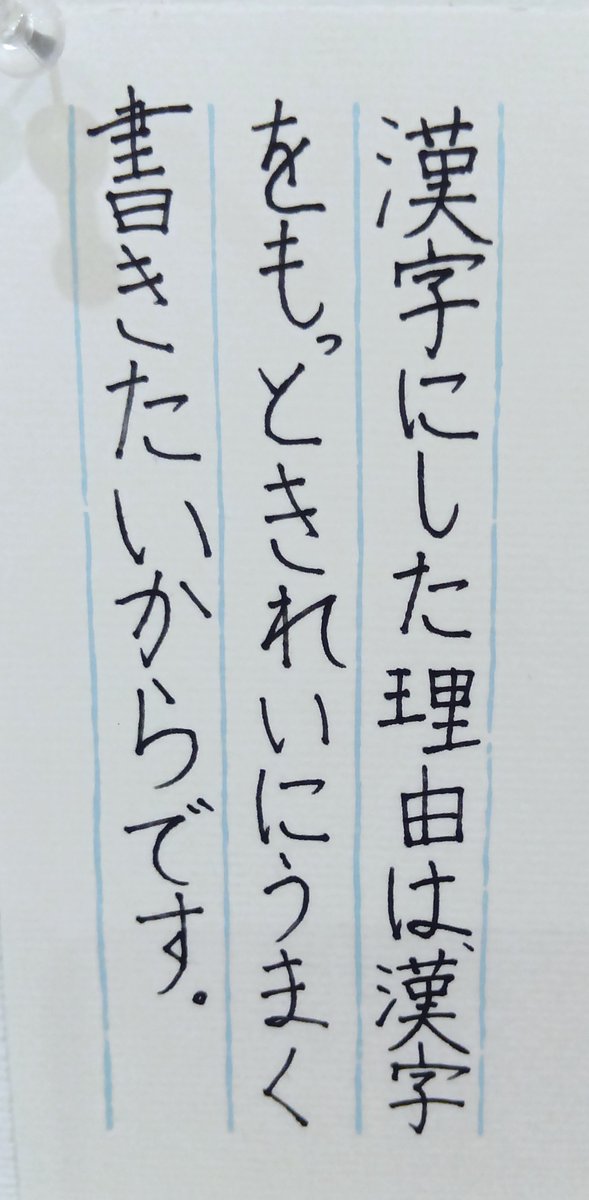 漢字にした理由は、漢字
をもっときれいにうまく
書きたいからです。